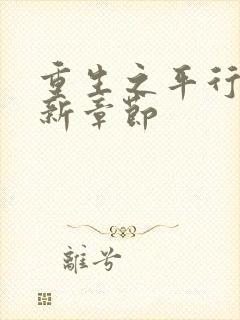 重生之平行
新章節
離兮